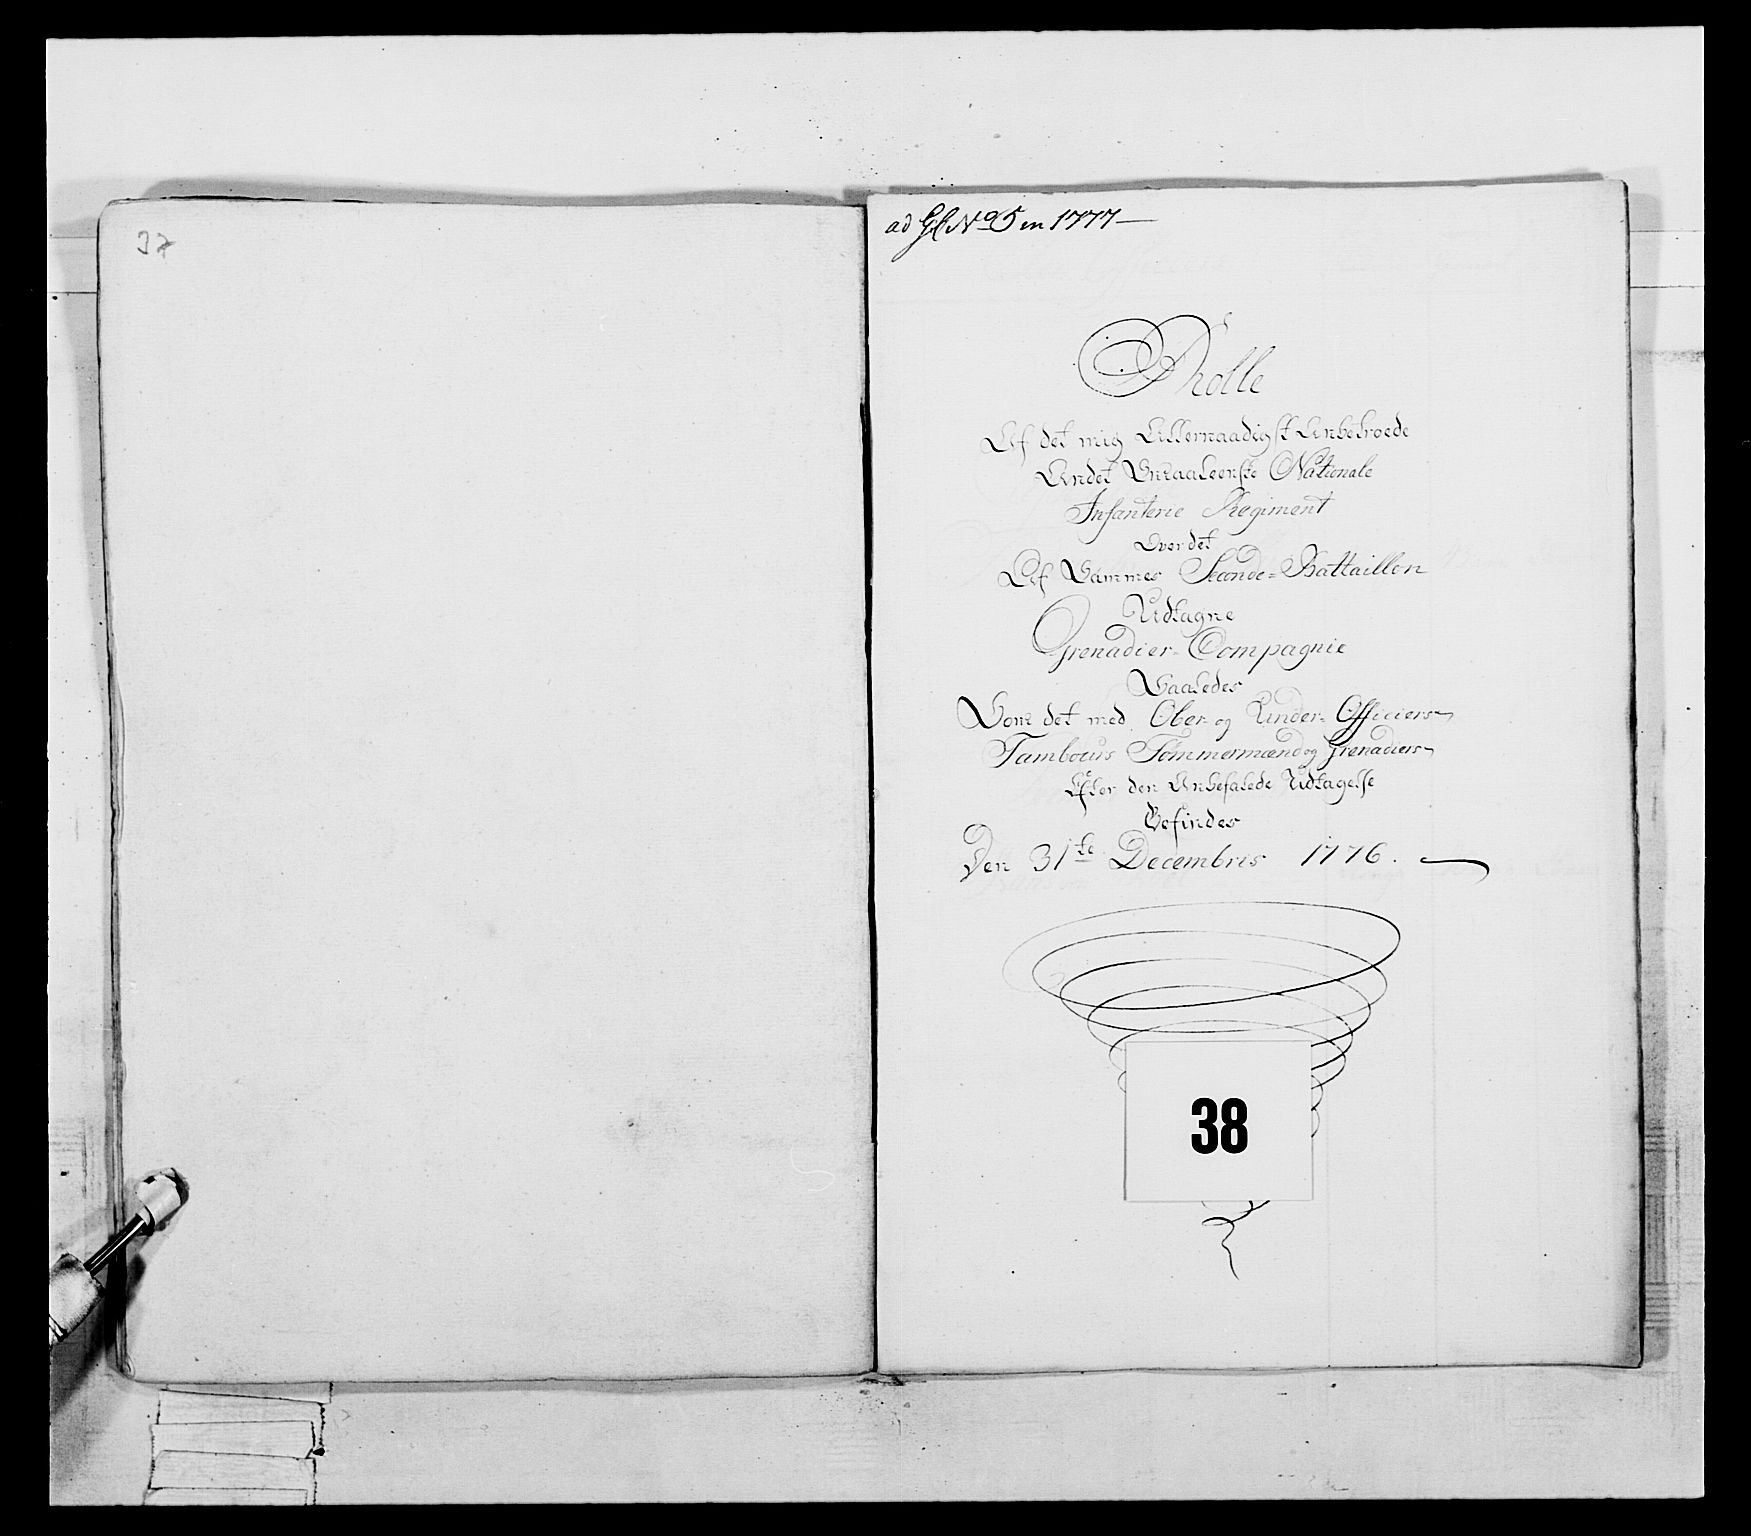 37
ad Gl No 5 en 1777
Rolle
Af det mig Allernaadigst Anbetroede
Andet Smaaleenske Nationale
Infanterie Regiment
Over det
Af Sammes Seconde-Battaillon
Udtagne
Grenadier-Compagnie
Saaledes
Som det med Ober- og Under-Officiers
Tambours Tømmermænd og Grenadiers
Efter den Anbefalede Udtagelse
Befindes
Den 31te Decembris 1776.
38